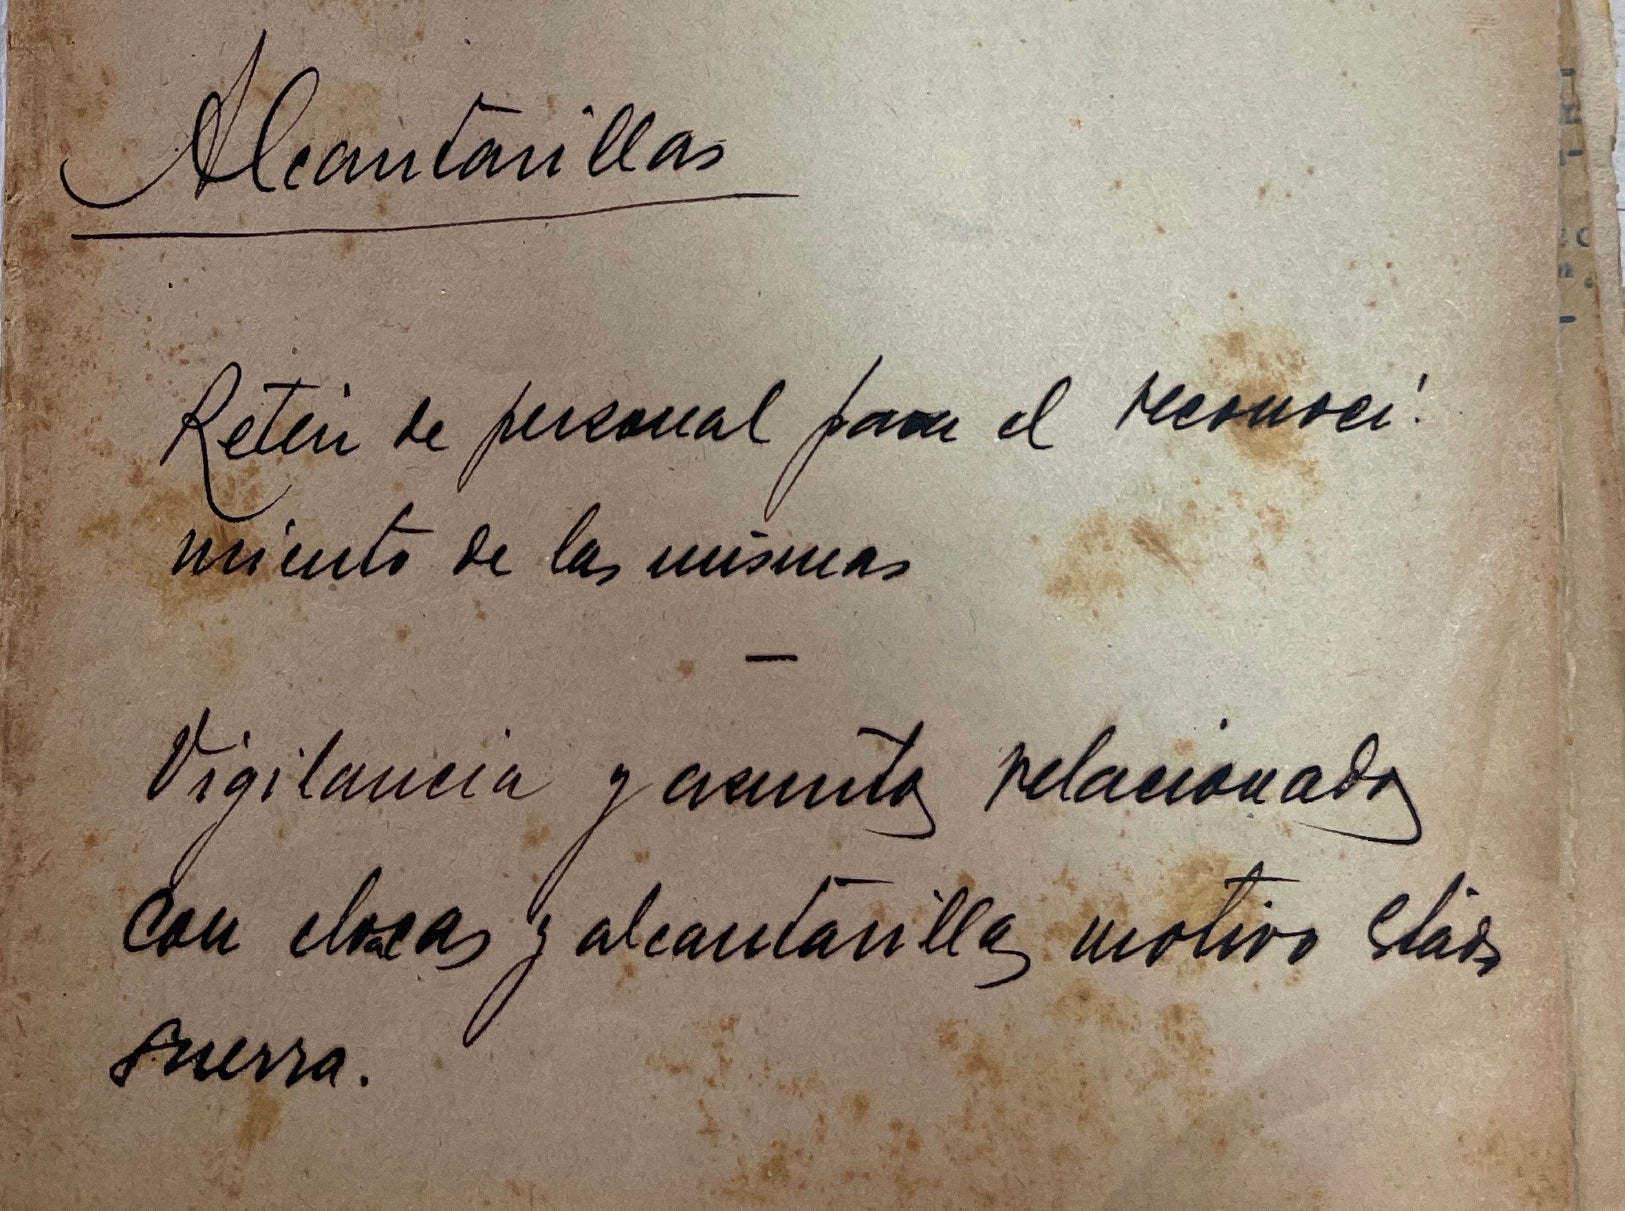 Alcantarillas
Retén de personal para el reconoci-
miento de las mismas
—
Vigilancia y asuntos relacionados
con cloacas y alcantarillas motivo Estado
guerra.